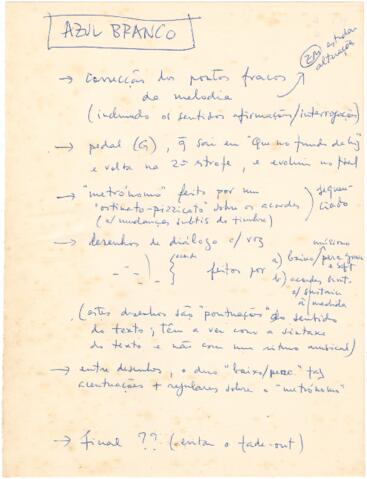 AZUL BRANCO
→ correcção dos pontos fracos
da melodia
(incluindo os sentidos afirmação/interrogação)
estudar
alteração
→ pedal (G), q̃ sai em "Que no fundo da
e volta na 2ª estrofe, e evolui no final
→ "metrónomo" feito por um
"ostinato-pizzicato" sobre os acordes
(c/ mudanças subtis do timbre)
sequenciado
→ desenhos de diálogo c/ voz
feitos por a) baixo/perc. grave
e soft
b) acordes sint.
c/ sustain
à medida
(estes desenhos são "pontuações" do sentido
do texto; têm a ver com a sintaxe
do texto e não com um ritmo musical)
→ entre desenhos, o duo "baixo/perc." faz
acentuações + regulares sobre o "metrónomo"
→ final ?? (evitar o fade-out)